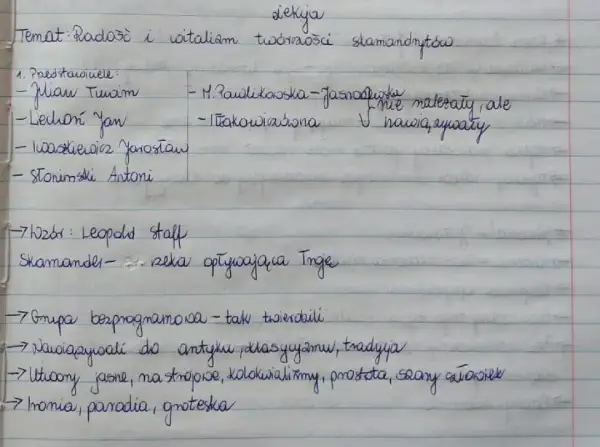 Lekcja
Temat: Radość i witalizm twórczości skamandrytów
1. Przedstawiciele:
- Julian Tuwim
- Lechoń Jan
- Iwaszkiewicz Jarosław
- Słonimski Antoni
- M. Pawlikowska-Jasnorzewska
- Iłłakowiczówna
nie należały, ale
nawiązywały
→ Wzór: Leopold Staff
Skamander - rzeka opływająca Troję
→ Grupa bezprogramowa - tak twierdzili
→ Nawiązywali do antyku, klasycyzmu, tradycja
→ Utwory jasne, nastrojowe, kolokwializmy, prostota, szary człowiek
→ Ironia, parodia, groteska